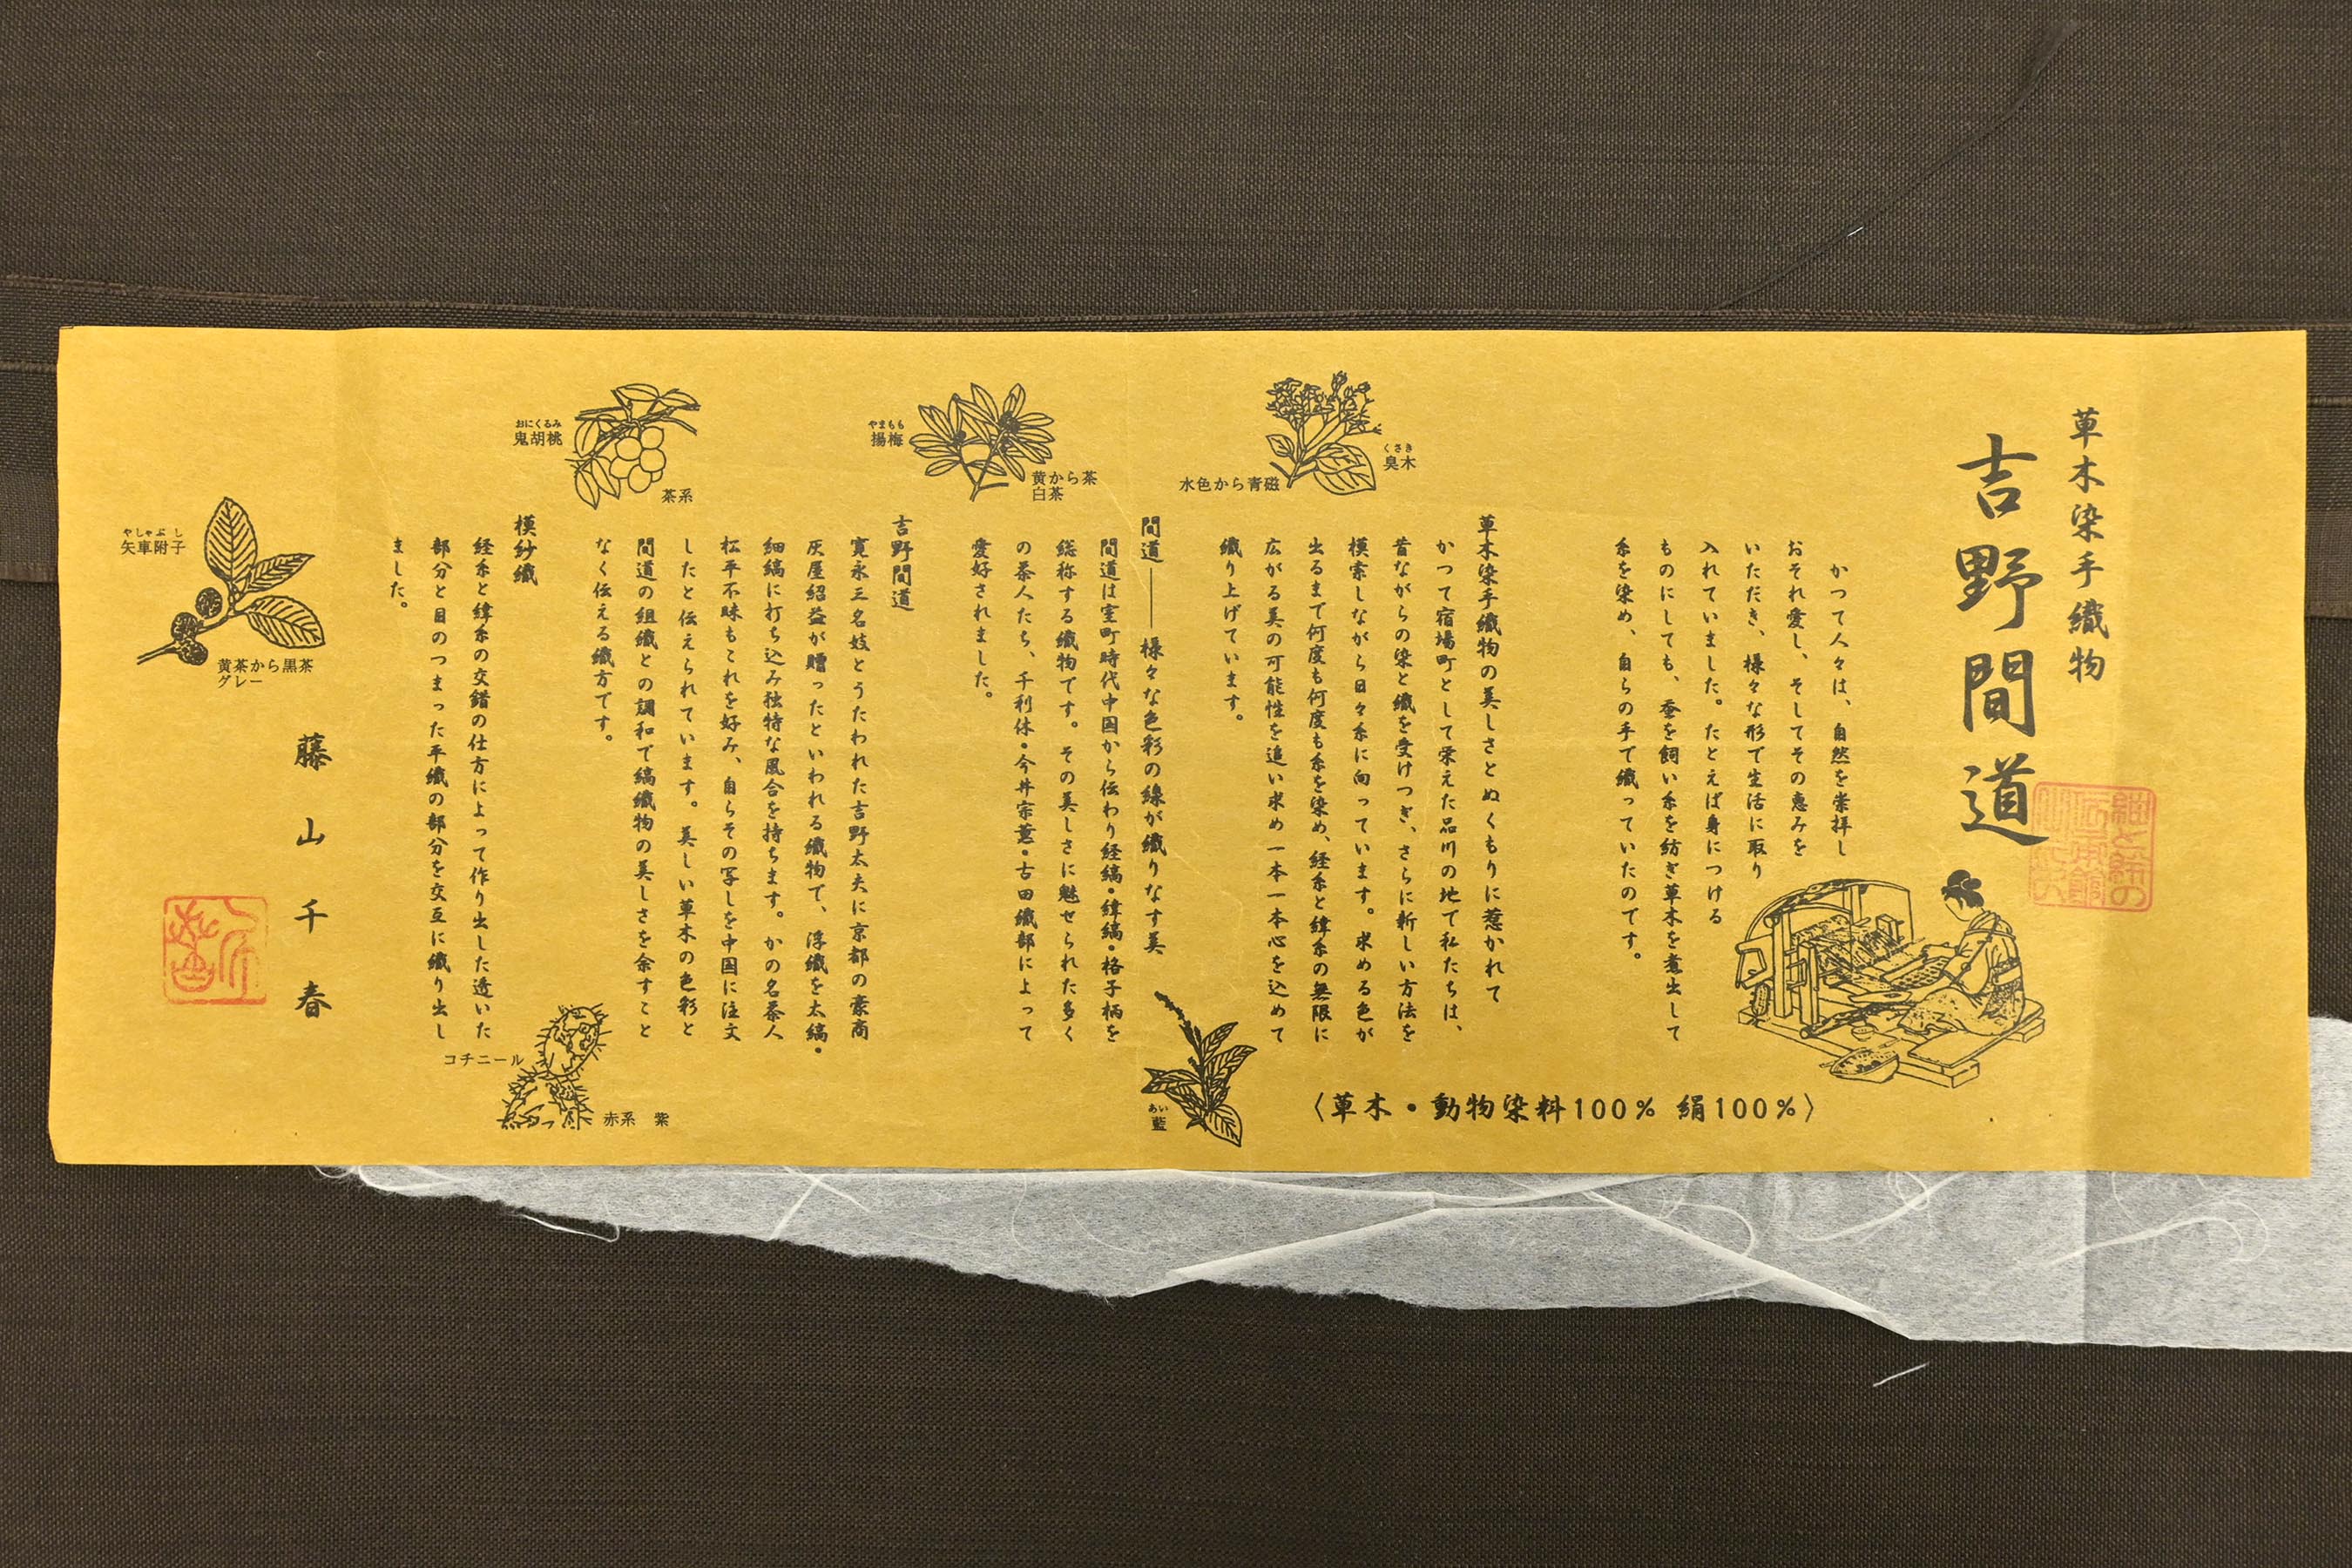 草木染手織物
吉野間道
かつて人々は、自然を崇拝し
おそれ愛し、そしてその恵みを
いただき、様々な形で生活に取り
入れていました。たとえば身につける
ものにしても、蚕を飼い糸を紡ぎ草木を煮出して
糸を染め、自らの手で織っていたのです。
〈草木・動物染料100% 絹100%〉
草木染手織物の美しさとぬくもりに惹かれて
かつて宿場町として栄えた品川の地で私たちは、
昔ながらの染と織を受けつぎ、さらに新しい方法を
模索しながら日々糸に向っています。求める色が
出るまで何度も何度も糸を染め、経糸と緯糸の無限に
広がる美の可能性を追い求め一本一本心を込めて
織り上げています。
くさき
臭木
水色から青磁
間道――様々な色彩の線が織りなす美
間道は室町時代中国から伝わり経縞・緯縞・格子柄を
総称する織物です。その美しさに魅せられた多く
の茶人たち、千利休・今井宗薫・古田織部によって
愛好されました。
あい
藍
やまもも
揚梅
黄から茶
白茶
吉野間道
寛永三名妓とうたわれた吉野太夫に京都の豪商
灰屋紹益が贈ったといわれる織物で、浮織を太縞・
細縞に打ち込み独特な風合を持ちます。かの名茶人
松平不昧もこれを好み、自らその写しを中国に注文
したと伝えられています。美しい草木の色彩と
間道の組織との調和で縞織物の美しさを余すこと
なく伝える織方です。
おにくるみ
鬼胡桃
茶系
模紗織
経糸と緯糸の交錯の仕方によって作り出した透いた
部分と目のつまった平織の部分を交互に織り出し
ました。
コチニール
赤系 紫
やしゃぶし
矢車附子
黄茶から黒茶
グレー
藤山千春